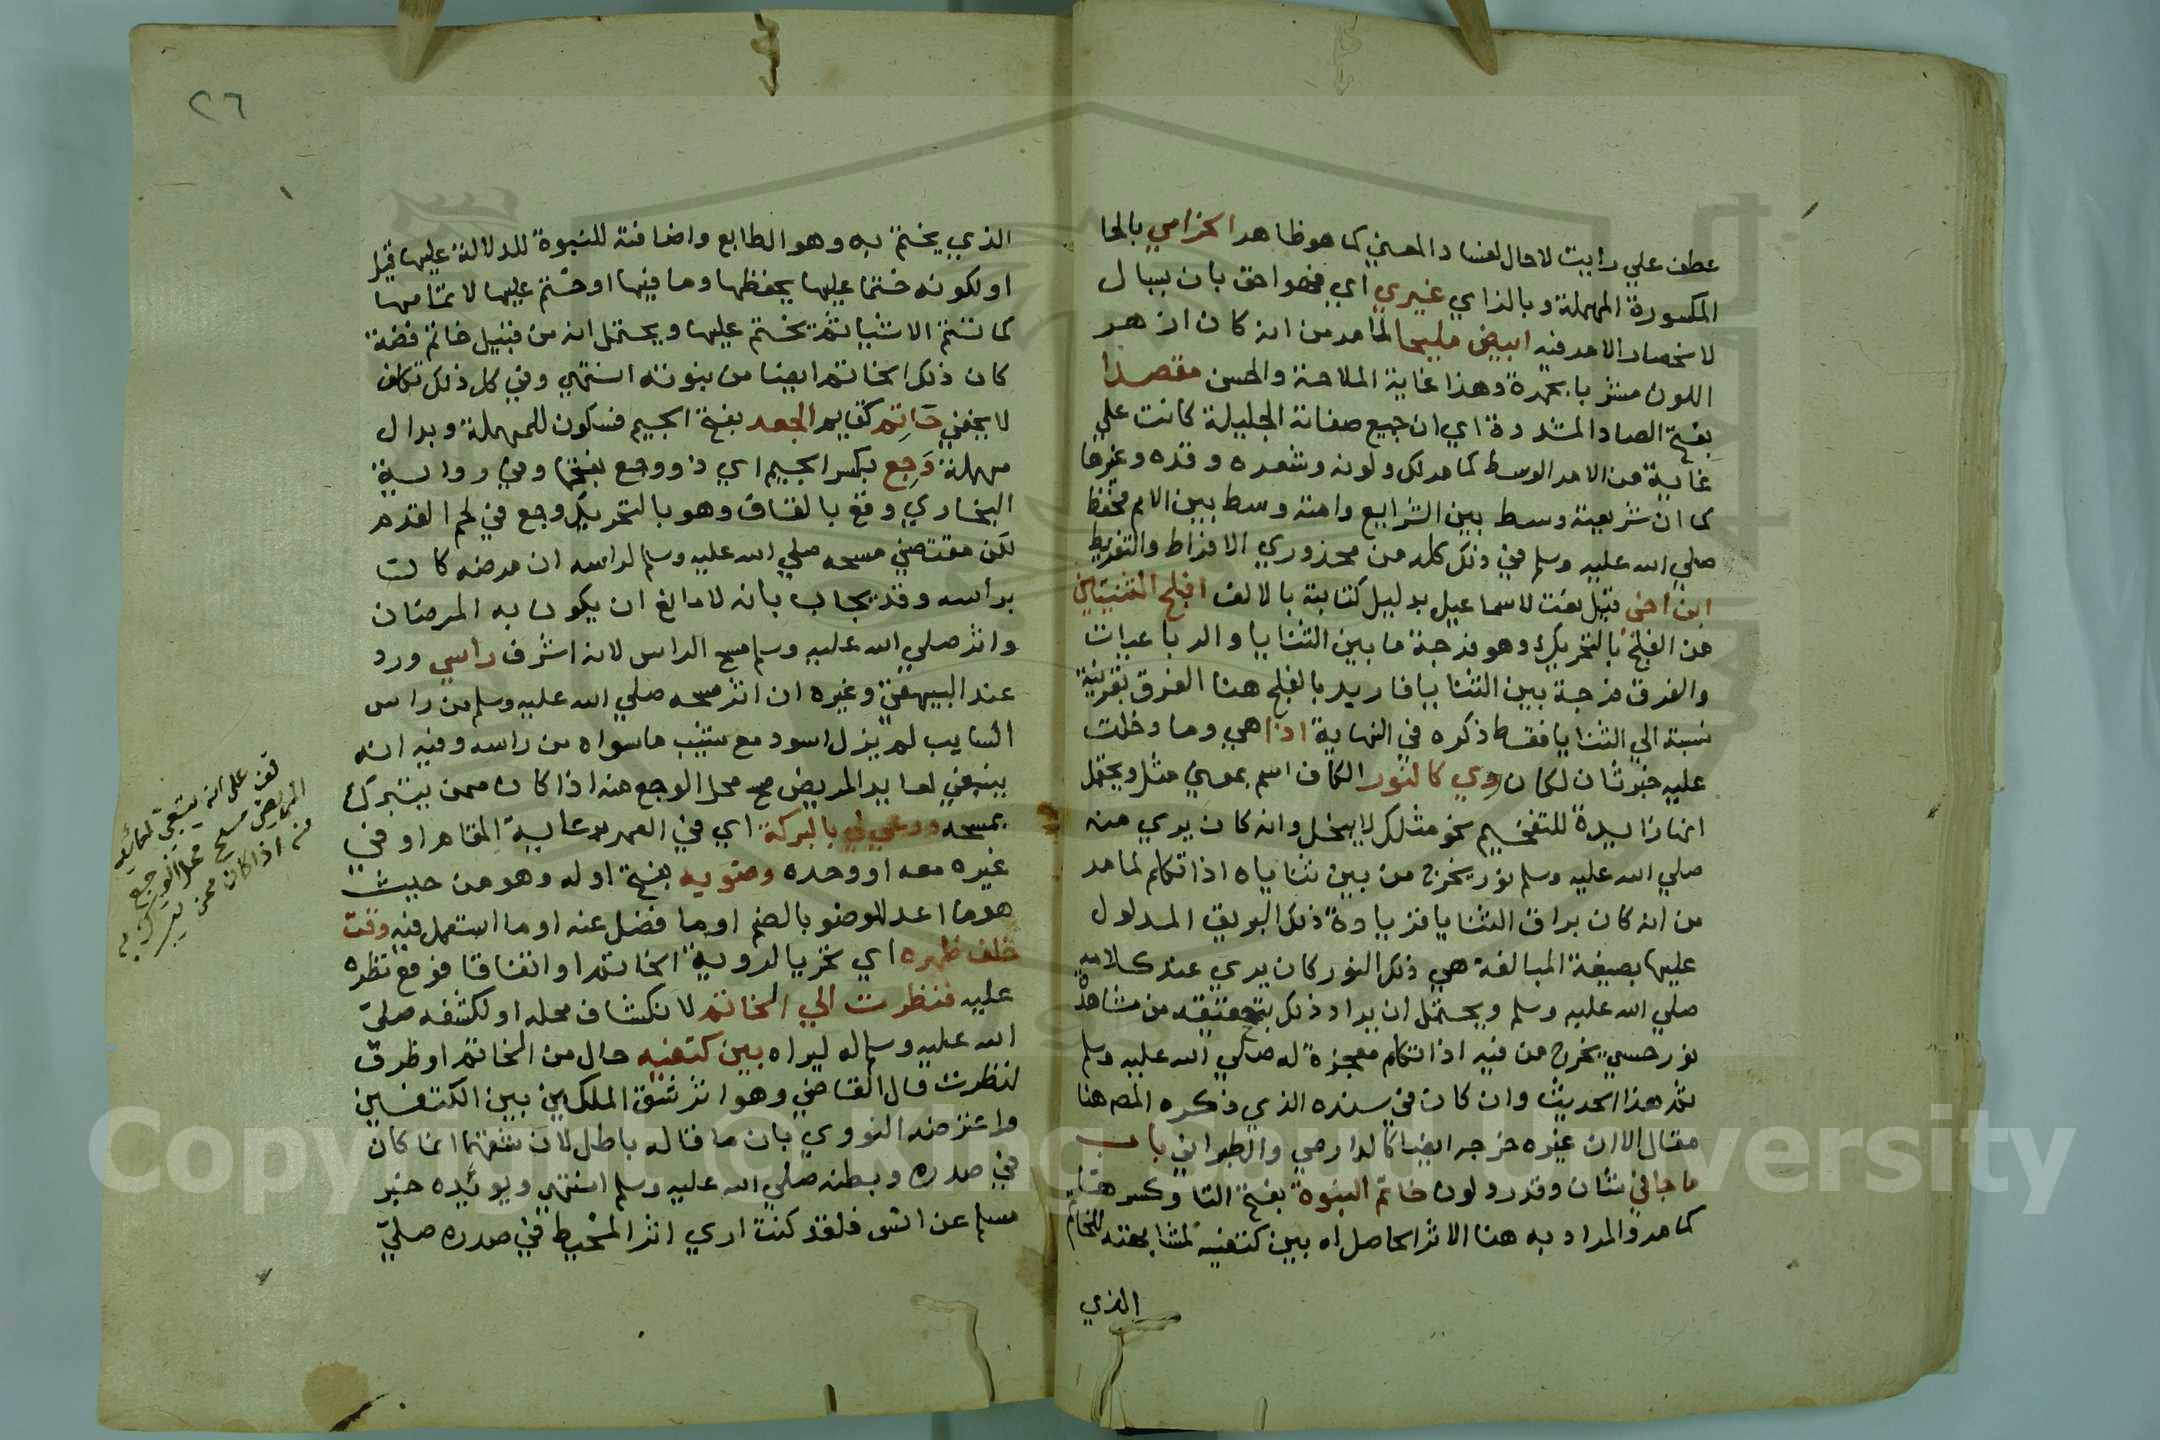 عطف علي رايت لا حال لفساد المعني كما هو ظاهر الحزامي بالحا
المكسورة المهملة وبالزاي غيري اي فهو احق بان يسال
لانحصار الامر فيه ابيض مليحا لما مر من انه كان ازهر
اللون مشربا بحمرة وهذا غاية الملاحة والحسن مقصدا
بفتح الصاد المشددة اي ان جميع صفاته الجليلة كانت علي
غاية من الامر الوسط كما مر لك ولونه وشعره وقده وغيرها
كما ان شريعته وسط بين الشرايع وامته وسط بين الامم فحفظ
صلي الله عليه وسلم في ذلك كله من محذوري الافراط والتفريط
ابن اخي قيل نعت لاسماعيل بدليل كتابته بالالف افلج الثنيتين
من الفلج بالتحريك وهو فرجة ما بين الثنايا والرباعيات
والفرق فرجة بين الثنايا فاريد بالفلج هنا الفرق بقرينة
نسبته الي الثنايا فقط ذكره في النهاية اذا هي وما دخلت
عليه خبر ثان لكان روي كالنور الكاف اسم بمعني مثل ويحتمل
انها زايدة للتفخيم نحو مثلك لا يبخل وانه كان يري منه
صلي الله عليه وسلم نور يخرج من بين ثناياه اذا تكلم لما مر
من انه كان براق الثنايا فزيادة ذلك البريق المدلول
عليها بصيغة المبالغة هي ذلك النور كان يري عند كلامه
صلي الله عليه وسلم ويحتمل ان يراد ذلك بتحقيقه من مشاهدة
نور حسي يخرج من فيه اذا تكلم معجزة له صلي الله عليه وسلم
ثم هذا الحديث وان كان في سنده الذي ذكره المص هنا
مقال الا ان غيره خرجه ايضا كالدارمي والطبراني باب
ما جا في شان وقدر ولون خاتم النبوة بفتح التا وكسرها
كما مر والمراد به هنا الاثر الحاصل له بين كتفيه لمشابهته للخاتم
الذي
٢٦
الذي يختم به وهو الطابع واضافته للنبوة للدلالة عليها قيل
او لكونه ختما عليها يحفظها وما فيها او ختم عليها لاتمامها
كما تتم الاشيا ثم يختم عليها ويحتمل انه من قبيل خاتم فضة
كان ذلك الخاتم ايضا من نبوته انتهي وفي كل ذلك تكلف
لا يخفي حاتم كقايم الجعد بفتح الجيم فسكون للمهملة وبدال
مهملة وجع بكسر الجيم اي ذو وجع بفتحها وفي رواية
البخاري وقع بالقاف وهو بالتحريك وجع في لحم القدم
لكن مقتضي مسحه صلي الله عليه وسلم لراسه ان مرضه كانت
براسه وقد يجاب بانه لا مانع ان يكون به المرضان
واثر صلي الله عليه وسلم مسح الراس لانه اشرف راسي ورد
عند البيهقي وغيره ان اثر مسحه صلي الله عليه وسلم من راس
السايب لم يزل اسود مع شيب ما سواه من راسه وفيه انه
ينبغي لعايد المريض مسح محل الوجع منه اذا كان ممن يتبرك
بمسحه ودعي لي بالبركة اي في العمر برعاية المقام او في
غيره معه او وحده وضويه بفتح اوله وهو من حيث
هو ما اعد للوضو بالضم او ما فضل عنه او ما استعمل فيه وقمت
خلف ظهره اي تحريا لروية الخاتم او اتفاقا فوقع نظره
عليه فنظرت الي الخاتم لانكشاف محله او لكشفه صلي
الله عليه وسلم له ليراه بين كتفيه حال من الخاتم او ظرف
لنظرت قال القاضي وهو اثر شق الملكين بين الكتفين
واعترضه النووي بان ما قاله باطل لان شقهما انما كان
في صدره وبطنه صلي الله عليه وسلم انتهي ويويده خبر
مسلم عن انس فلقد كنت اري اثر المخيط في صدره صلي
قف على انه ينبغي لعائد
المريض مسح محل الوجع
منه اذا كان ممن يتبرك به
Copyright © King Saud University